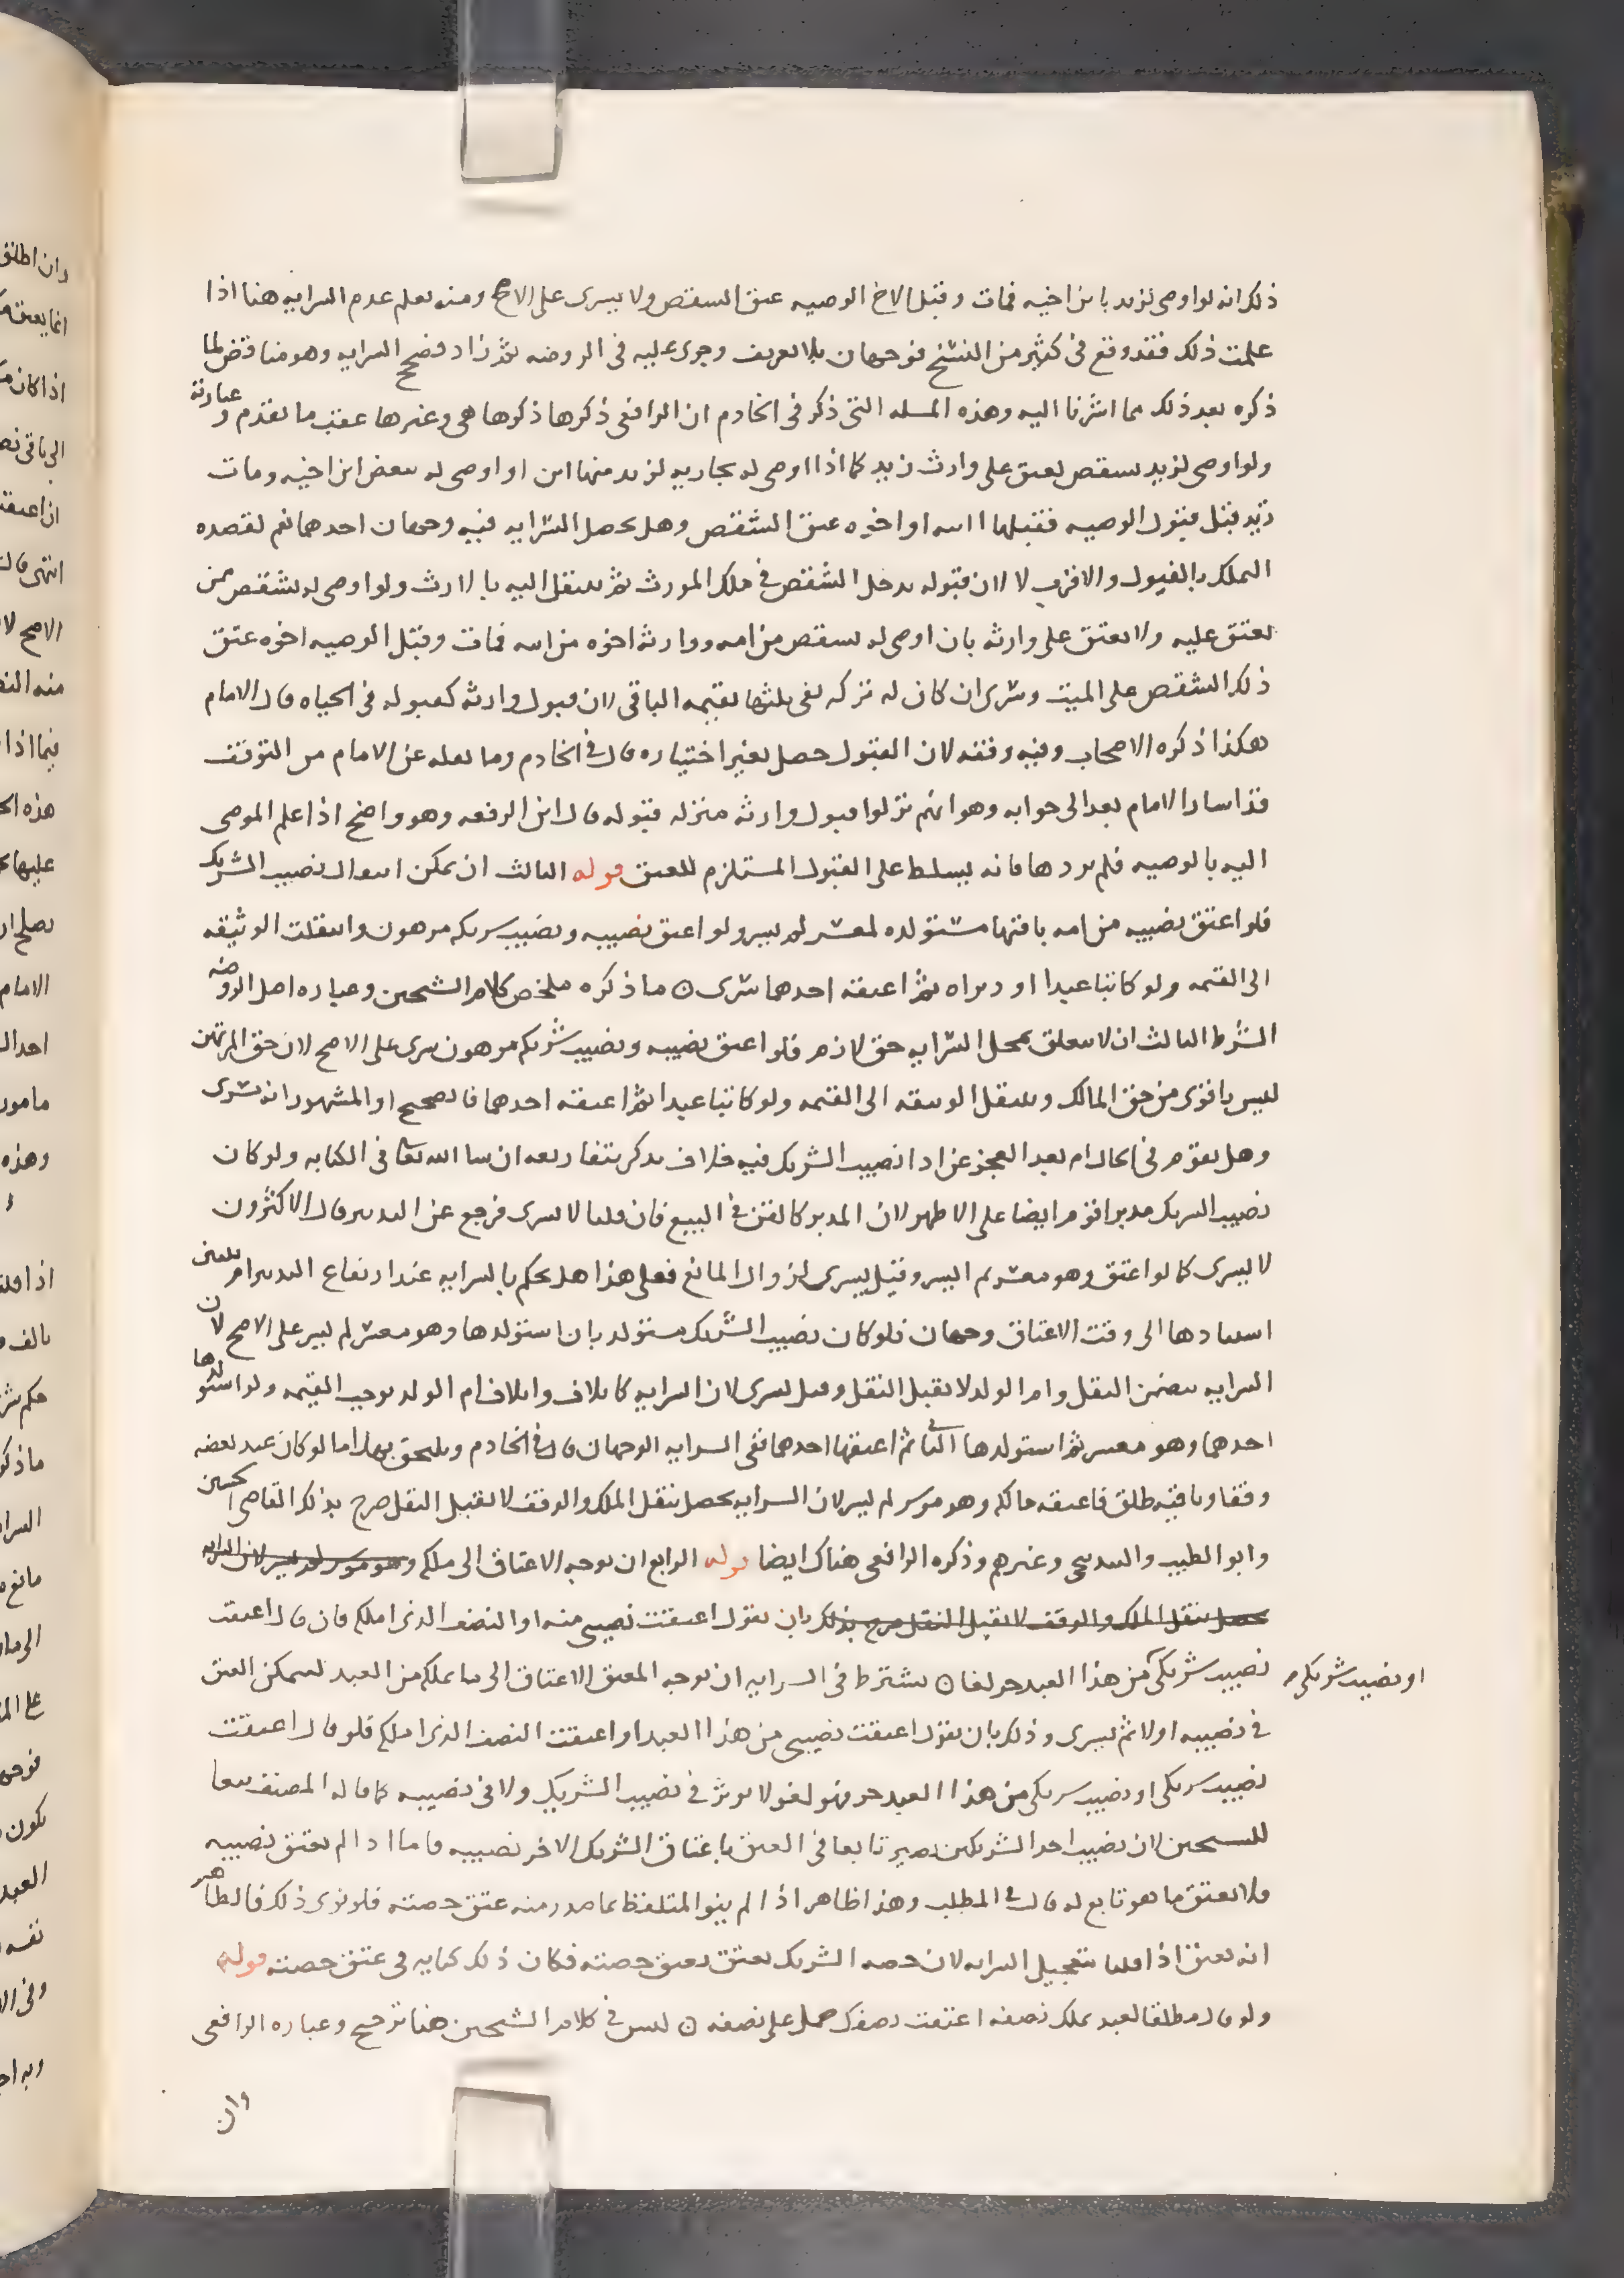 ذلك انه لو اوصى لزيد بابن اخيه فمات وقبل الاخ الوصيه عتق الشقص ولا يسرى على الاصح ومنه يعلم عدم السرايه هنا اذا
علمت ذلك فقد وقع فى كثير من النسخ فوجهان بلا تعريف وجرى عليه فى الروضه ثم زاد فصحح السرايه وهو مناقض لما
ذكره بعد ذلك مما اشرنا اليه وهذه المسله التى ذكر فى الخادم ان الرافعى ذكرها ذكرها هى وغيرها عقب ما تقدم وعبارته
ولو اوصى لزيد بشقص يعتق على وارث زيد كما اذا اوصى له بجاريه لزيد منها ابن او اوصى له ببعض ابن اخيه ومات
زيد قبل قبول الوصيه فقبلها ابنه او اخوه عتق الشقص وهل يحصل السرايه فيه وجهان احدهما نعم لقصده
التملك بالقبول والاقرب لا لان قبوله يدخل الشقص فى ملك المورث ثم ينتقل اليه بالارث ولو اوصى له بشقص ممن
يعتق عليه ولا يعتق على وارثه بان اوصى له بشقص من امه ووارثه اخوه من ابيه فمات وقبل الوصيه اخوه عتق
ذلك الشقص على الميت وسرى ان كان له تركه يفى ثلثها بقيمه الباقى لان قبول وارثه كقبوله فى الحياه قال الامام
هكذا ذكره الاصحاب وفيه وقفه لان القبول حصل بغير اختياره قال فى الخادم وما نقله عن الامام من التوقف
قد اشار الامام بعد الى جوابه وهو انهم نزلوا قبول وارثه منزله قبوله قال ابن الرفعه وهو واضح اذا علم الموصى
اليه بالوصيه فلم يردها فانه يسلط على القبول المستلزم للعتق قوله الثالث ان يمكن انتقال نصيب الشريك
فلو اعتق نصيبه من امه باقيها مستولده لمعسر لم يسر ولو اعتق نصيبه ونصيب شريكه مرهون وانتقلت الوثيقه
الى القيمه ولو كاتبا عبدا او دبراه ثم اعتقه احدهما سرى ○ ما ذكره ملخص كلام الشيخين وعباره اصل الروضه
الشرط الثالث ان لا يتعلق بمحل السرايه حق لازم فلو اعتق نصيبه ونصيب شريكه مرهون سرى على الاصح لان حق المرتهن
ليس باقوى من حق المالك وينتقل الوثيقه الى القيمه ولو كاتبا عبدا ثم اعتقه احدهما فالصحيح او المشهور انه يسرى
وهل يقوم فى الحال ام بعد العجز عن ادا نصيب الشريك فيه خلاف يذكر بتفاريعه ان شا الله تعا فى الكتابه ولو كان
نصيب الشريك مدبرا قوم ايضا على الاظهر لان المدبر كالقن فى البيع فان قلنا لا يسرى فرجع عن التدبير قال الاكثرون
لا يسرى كما لو اعتق وهو معسر ثم ايسر وقيل يسرى لزوال المانع فعلى هذا هل يحكم بالسرايه عند ارتفاع التدبير ام يتبين
اسنادها الى وقت الاعتاق وجهان فلو كان نصيب الشريك مستولد بان استولدها وهو معسر لم يسر على الاصح لان
السرايه يتضمن النقل وام الولد لا يقبل النقل وقيل يسرى لان السرايه كاتلاف واتلاف ام الولد يوجب القيمه ولو استولدها
احدهما وهو معسر ثم استولدها الثانى ثم اعتقها احدهما ففى السرايه الوجهان قال فى الخادم ويلحق بهذا ما لو كان عبد بعضه
وقفا وباقيه طلق فاعتقه مالكه وهو موسر لم يسر لان السرايه يحصل بنقل الملك والوقف لا يقبل النقل صرح بذلك القاضى الحسين
وابو الطيب والبندنيجى وغيرهم وذكره الرافعى هناك ايضا قوله الرابع ان يوجه الاعتاق الى ملكه وهو موسر لم يسر لان السرايه
يحصل بنقل الملك والوقف لا يقبل النقل صرح بذلك بان يقول اعتقت نصيبى منه او النصف الذى املكه فان قال اعتقت
نصيب شريكى من هذا العبد حر لغا ○ يشترط فى السرايه ان يوجه المعتق الاعتاق الى ما يملكه من العبد ليمكن العتق
او نصيب شريكى م
فى نصيبه اولا ثم يسرى وذلك بان يقول اعتقت نصيبى من هذا العبد او اعتقت النصف الذى املكه فلو قال اعتقت
نصيب شريكى او نصيب شريكى من هذا العبد حر فهو لغو لا يوثر فى نصيب الشريك ولا فى نصيبه كما قاله المصنف تبعا
للشيخين لان نصيب احد الشريكين يصير تابعا فى العتق باعتاق الشريك الاخر نصيبه فاما اذا لم يعتق نصيبه
فلا يعتق ما هو تابع له قال فى المطلب وهذا ظاهر اذا لم ينو المتلفظ بما صدر منه عتق حصته فلو نوى ذلك فالظاهر
انه يعتق اذا قلنا بتعجيل السرايه لان حصه الشريك يعتق بعتق حصته فكان ذلك كنايه فى عتق حصته قوله
ولو قال مطلقا لعبد يملك نصفه اعتقت نصفك حمل على نصفه ○ ليس فى كلام الشيخين هنا ترجيح وعباره الرافعى
وان